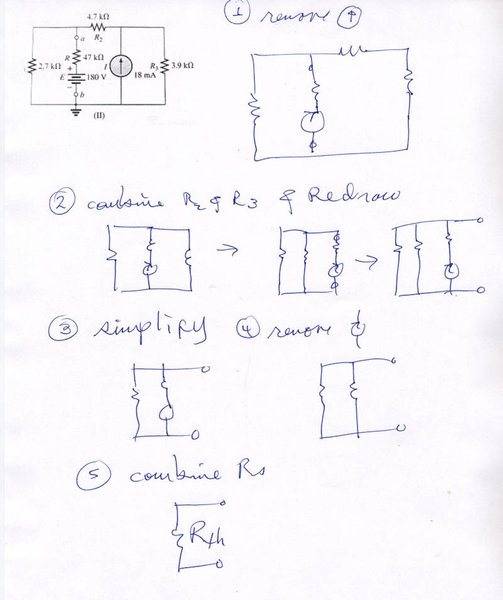 4.7 kΩ
R₂
a
2.7 kΩ
R
47 kΩ
I
R₃
3.9 kΩ
+
E
180 V
18 mA
-
b
(II)
① remove
② combine R₂ & R₃ & Redraw
③ simplify
④ remove
⑤ combine Rs
Rth